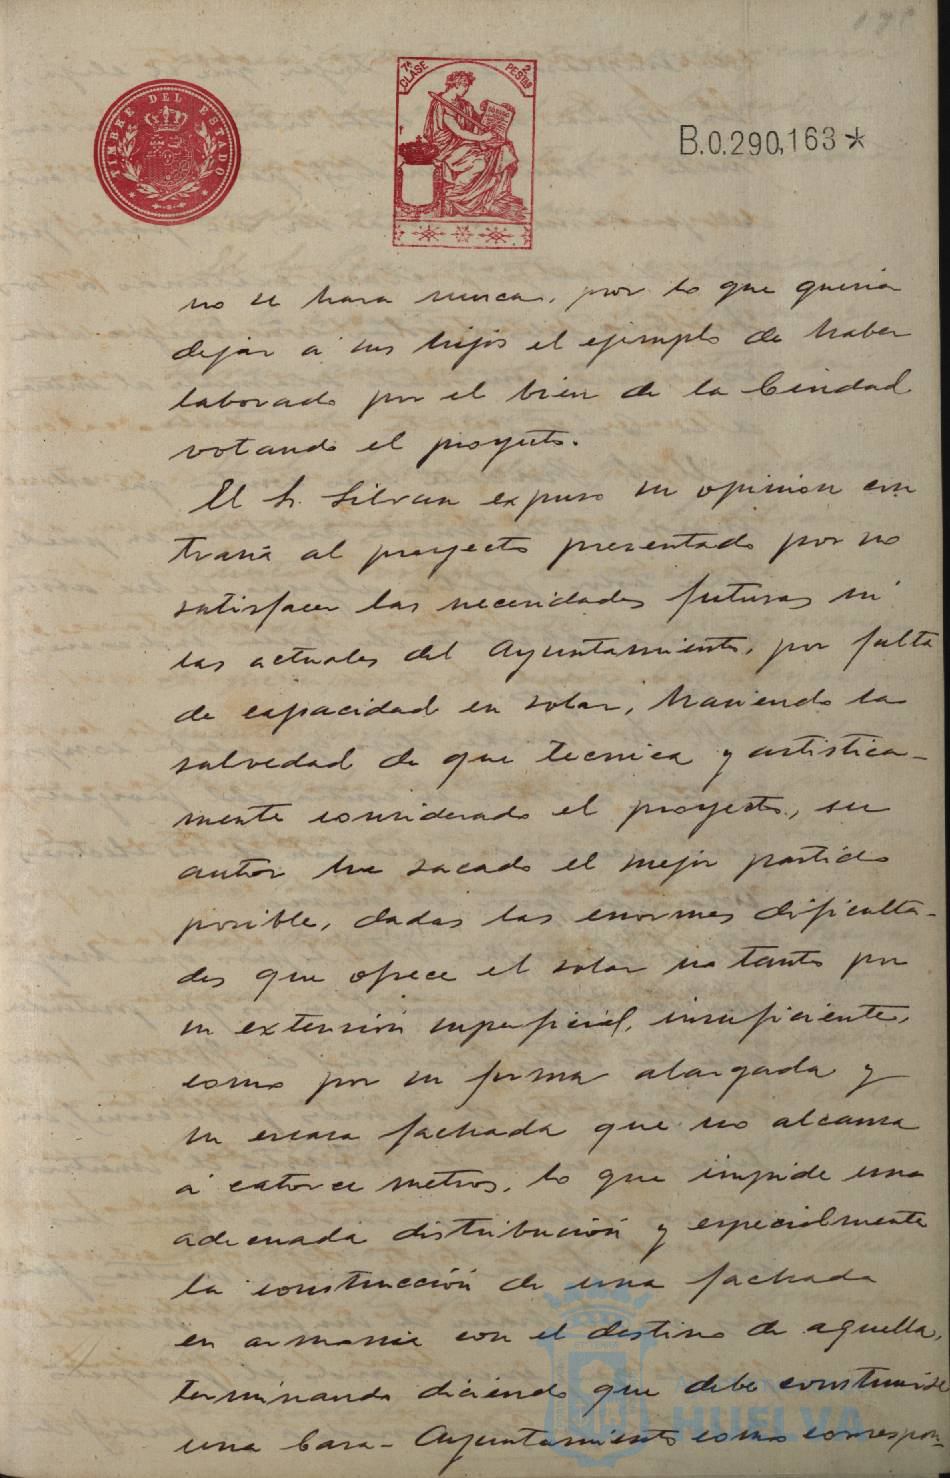 178
TIMBRE DEL ESTADO
7ª CLASE
2 PESETAS
B.0.290,163*
no se hara nunca, por lo que queria
dejar á sus hijos el ejemplo de haber
laborado por el bien de la Ciudad
votando el proyecto.
El Sr. Silvan expuso su opinion con
traria al proyecto presentado por no
satisfacer las necesidades futuras ni
las actuales del Ayuntamiento, por falta
de capacidad en solar, haciendo la
salvedad de que tecnica y artistica-
mente considerado el proyecto, su
autor ha sacado el mejor partido
posible, dadas las enormes dificulta-
des que ofrece el solar no tanto por
su extensión superficial, insuficiente,
como por su forma alargada y
su escasa fachada que no alcanza
á catorce metros, lo que impide una
adecuada distribución y especialmente
la construcción de una fachada
en armonia con el destino de aquella,
terminando diciendo que debe construirse
una Casa-Ayuntamiento como correspon-
HUELVA